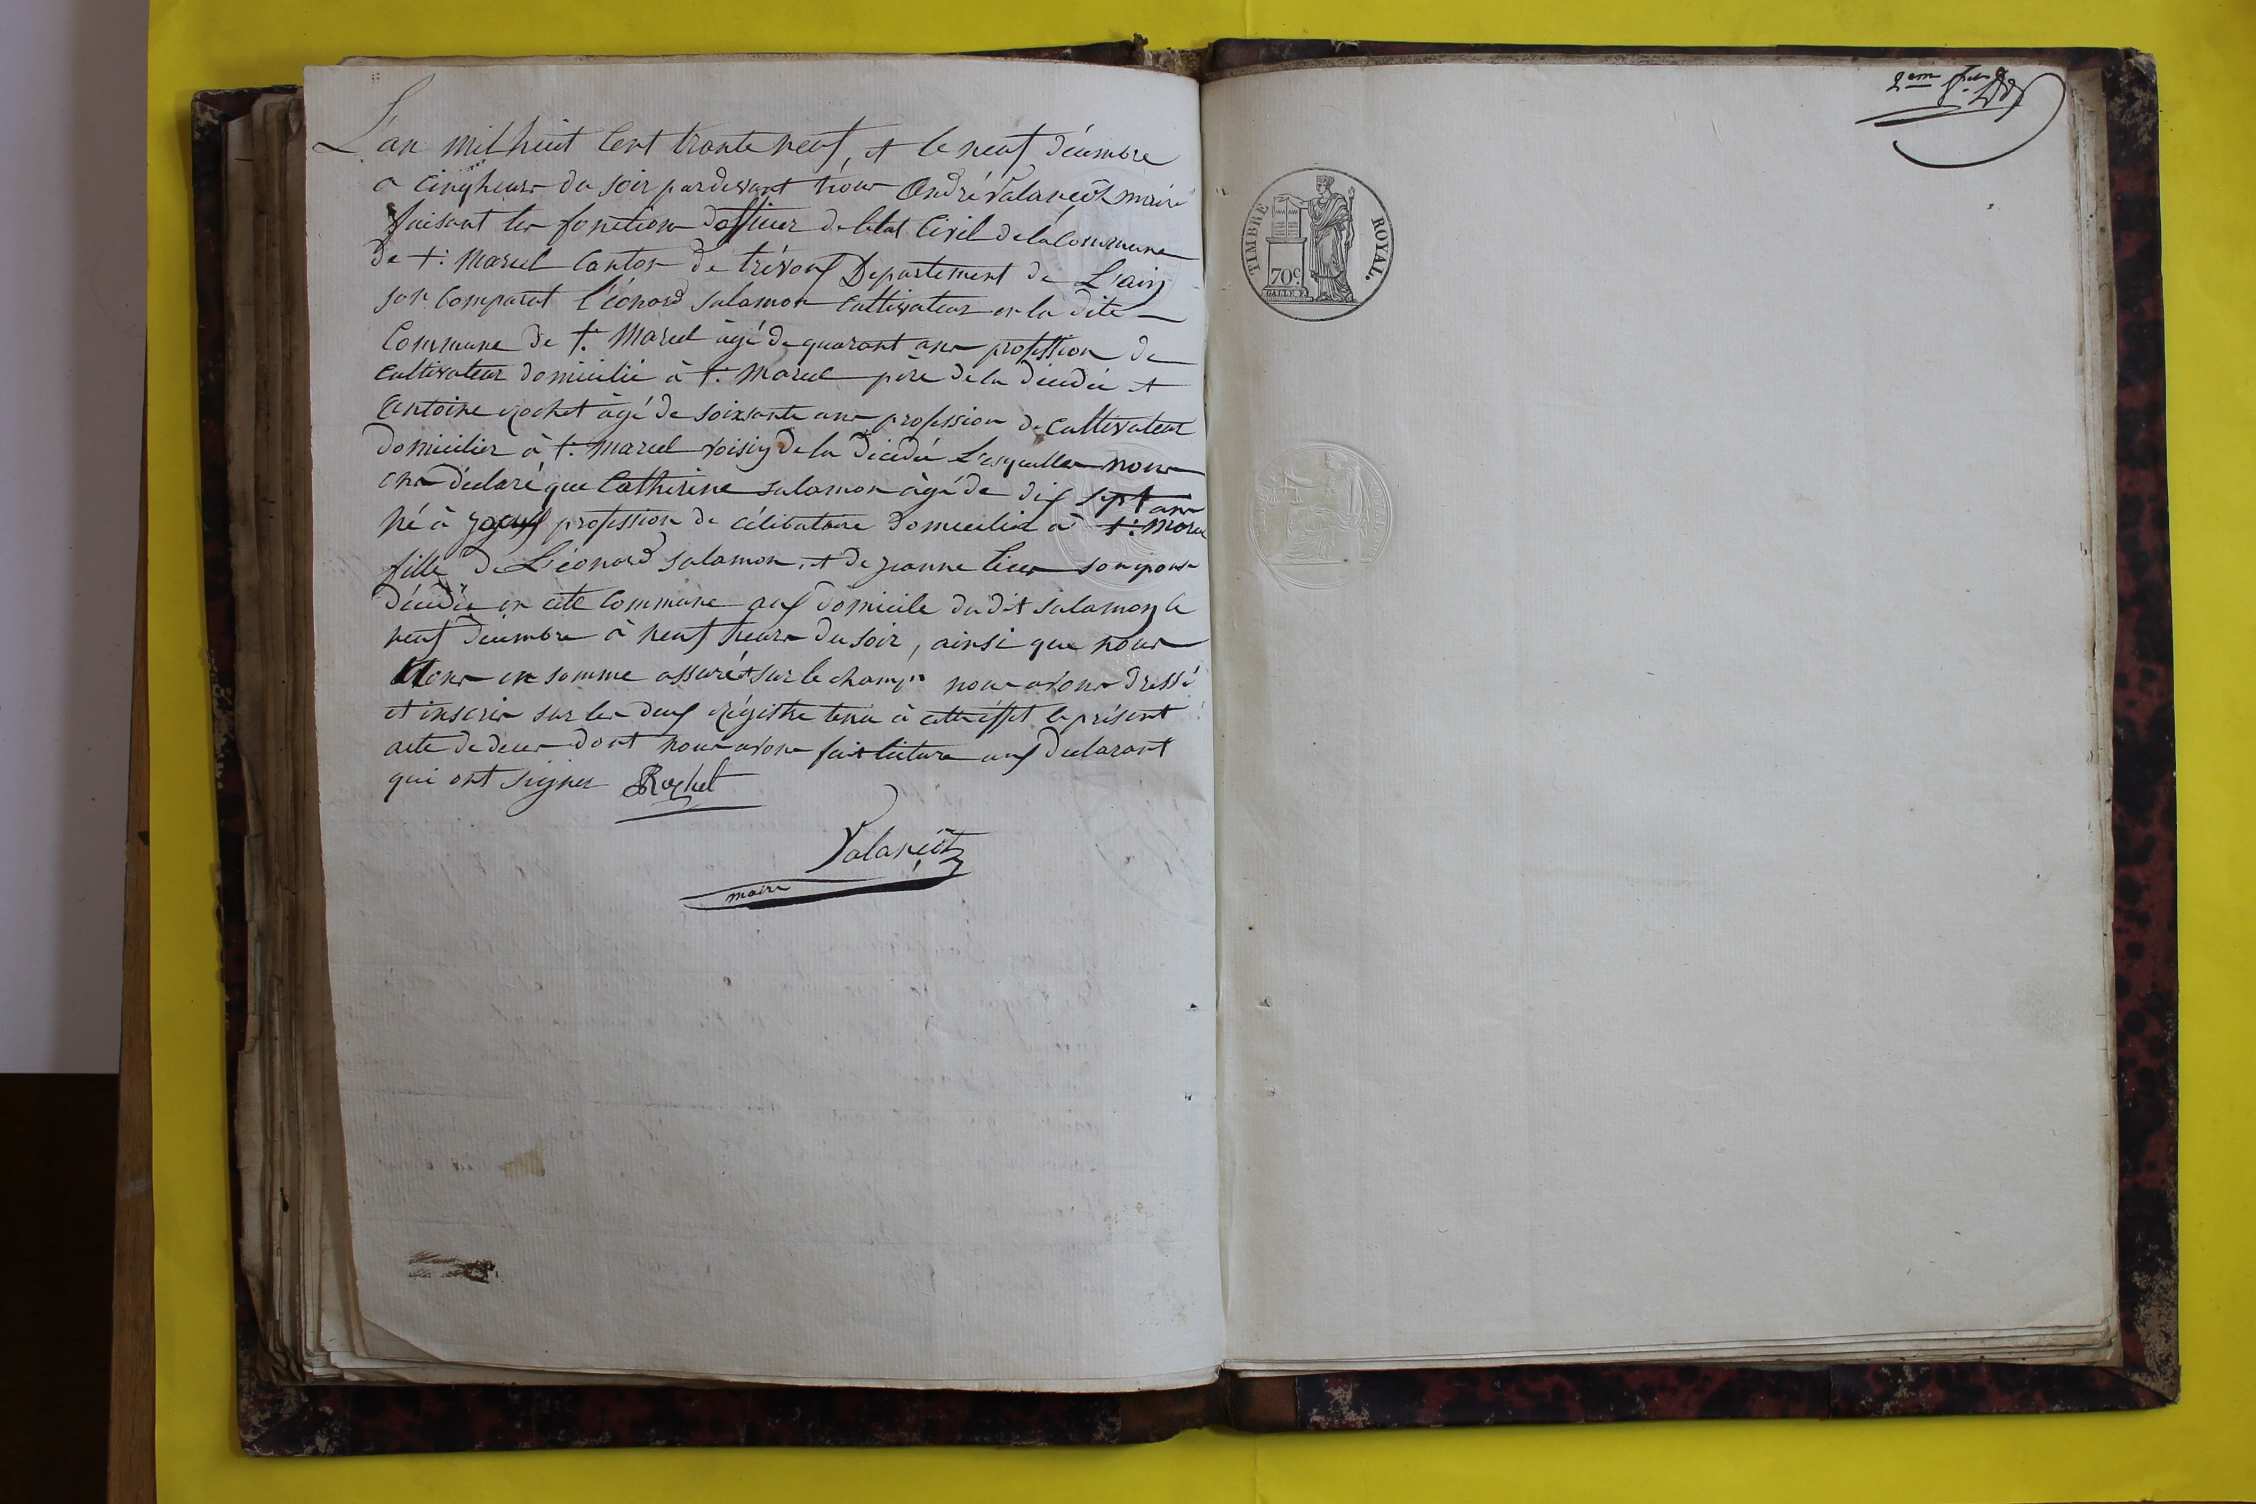 L'an mil huit Cent trante neuf, et le neuf décembre
a cinq heures du soir pardevant nous André Valançôt maire
faisant les fonction d'officier de létat Civil de la Commune
de St. Marcel Canton de trévoux Département de L'ain
son comparut Léonard Salamon cultivateur en la dite
Commune de St. Marcel âgé de quarant ans profession de
cultivateur domicilié à St. Marcel père de la décédée et
Antoine Rochet âgé de soixsante ans profession de cultivateur
domicilier à St. Marcel voisin de la décédée Lesquelles nous
ons déclaré que Catherine Salamon âgé de dix sept ans
né à profession de célibataire domicilié à St. Marcel
fille de Léonard Salamon, et de jeanne son épouse
décédée en cete Commune aux domicile du dit Salamon le
neuf décembre à neuf heures du soir, ainsi que nous
en somme assuré et sur le champ nous avons dressé
et inscris sur les deux régistre tenu à cette éffet le présent
acte de deces dont nous avons fait lecture aux declarant
qui ont signer Rochet
Valançôt
maire
2em
TIMBRE ROYAL.
70c.